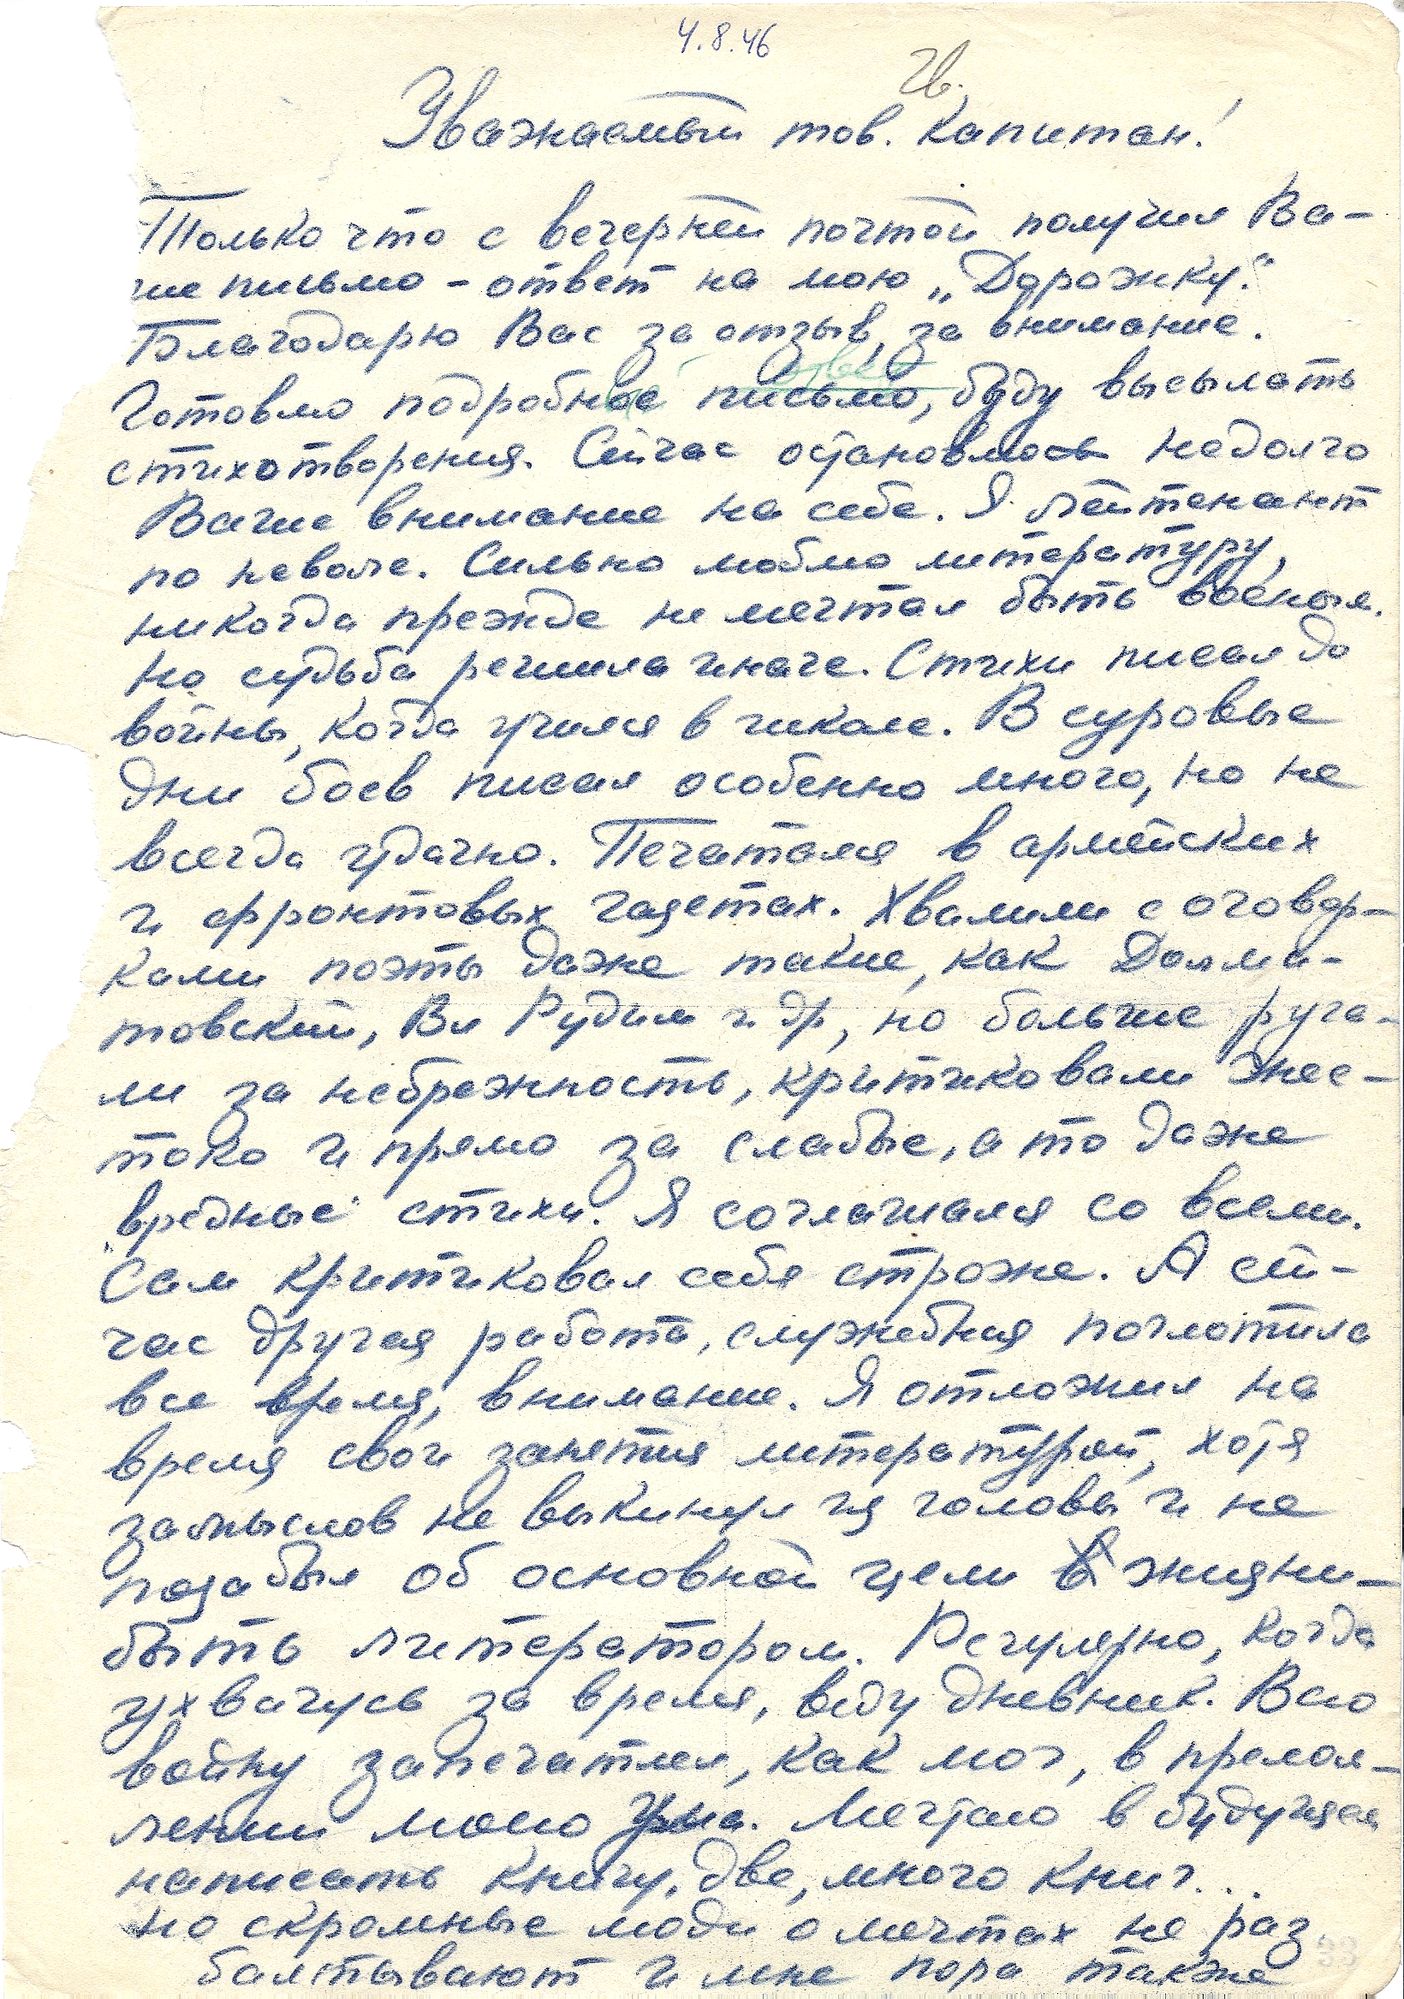 4.8.46
Уважаемый тов. Капитан!
Только что с вечерней почтой получил Ва-
ше письмо - ответ на мою „Дорожку".
Благодарю Вас за отзыв, за внимание.
Готовлю подробное письмо, буду высылать
стихотворения. Сейчас остановлю недолго
Ваше внимание на себе. Я лейтенант
по неволе. Сильно люблю литературу,
никогда прежде не мечтал быть военым.
Но судьба решила иначе. Стихи писал до
войны, когда учился в школе. В суровые
дни боев писал особенно много, но не
всегда удачно. Печатался в армейских
и фронтовых газетах. Хвалили с оговор-
ками поэты даже такие, как Долма-
товский, Вл Рудим и др, но больше руга-
ли за небрежность, критиковали жес-
токо и прямо за слабые, а то даже
„вредные" стихи. Я соглашался со всеми.
Сам критиковал себя строже. А сей-
час другая работа, служебная поглотила
все время, внимание. Я отложил на
время свои занятия литературой, хотя
замыслов не выкинул из головы и не
позабыл об основной цели жизни -
быть литератором. Регулярно, когда
ухвачусь за время, веду дневник. Всю
войну запечатлел, как мог, в прелом-
лении моего ума. Мечтаю в будущем
написать книгу, две, много книг...
Но скромные люди о мечтах не раз
балтывают и мне пора также
33